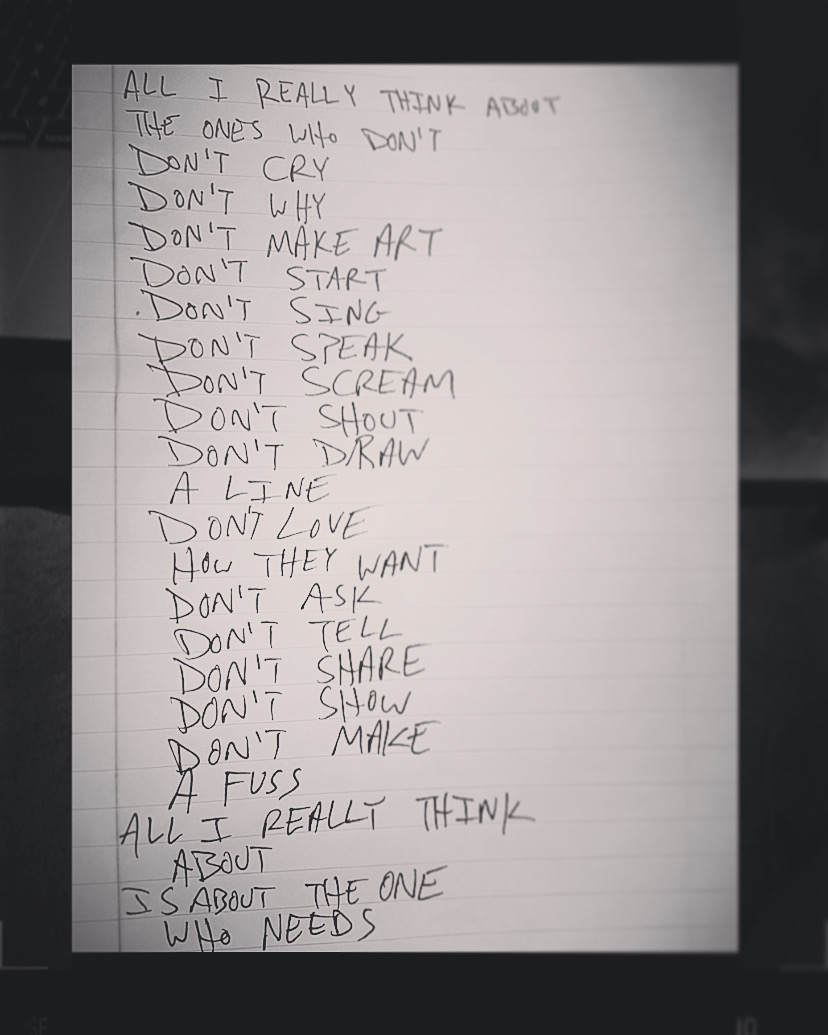 ALL I REALLY THINK ABOUT
THE ONES WHO DON'T
DON'T CRY
DON'T WHY
DON'T MAKE ART
DON'T START
DON'T SING
DON'T SPEAK
DON'T SCREAM
DON'T SHOUT
DON'T DRAW
A LINE
DON'T LOVE
HOW THEY WANT
DON'T ASK
DON'T TELL
DON'T SHARE
DON'T SHOW
DON'T MAKE
A FUSS
ALL I REALLY THINK
ABOUT
IS ABOUT THE ONE
WHO NEEDS